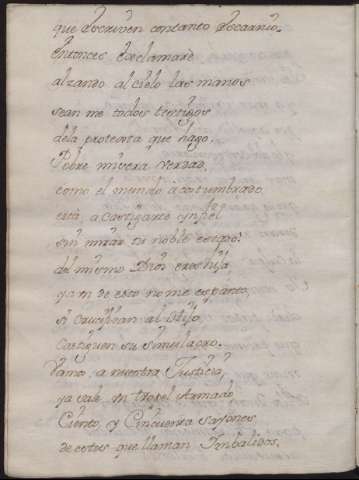 que escriven con tanto escarnio.
Entonces exclamarè
alzando al cielo las manos
sean me todos testigos
dela protesta que hago.
Pobre misera verdad.
como el mundo acostumbrado
està, a castigarte infiel
sin mirar tu noble estado:
del mismo Dios eres hija
ya m de esto no me espanto,
si crucifican al Hijo,
castiguen su simulacro.
Vamos a nuestra Justicia,
ya sale un tropel Armado,
Ciento, y Cinquenta sayones
de estos que llaman Imbalidos.